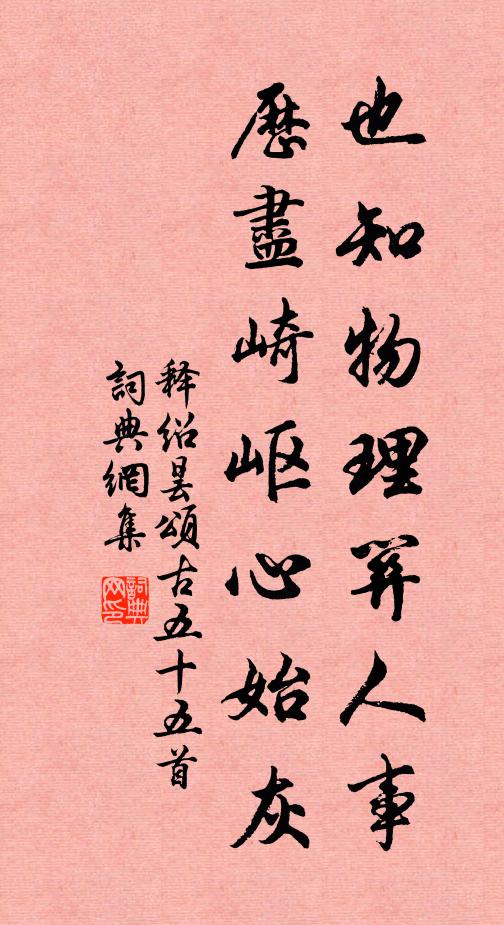 也知物理羿人事
歷盡崎岖心始灰
释绍昙頌古五十五首
詞典網集
詞典网印